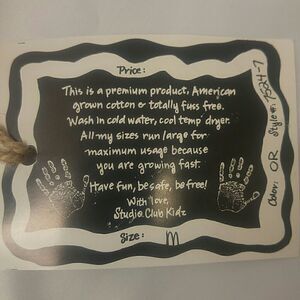 Price:
This is a premium product, American
grown cotton & totally fuss free.
Wash in cold water, cool temp dryer.
All my sizes run large for
maximum usage because
you are growing fast.
Have fun, be safe, be free!
With love,
Studio Club Kidz
Size: M
Color: OR Style #: 7524-7